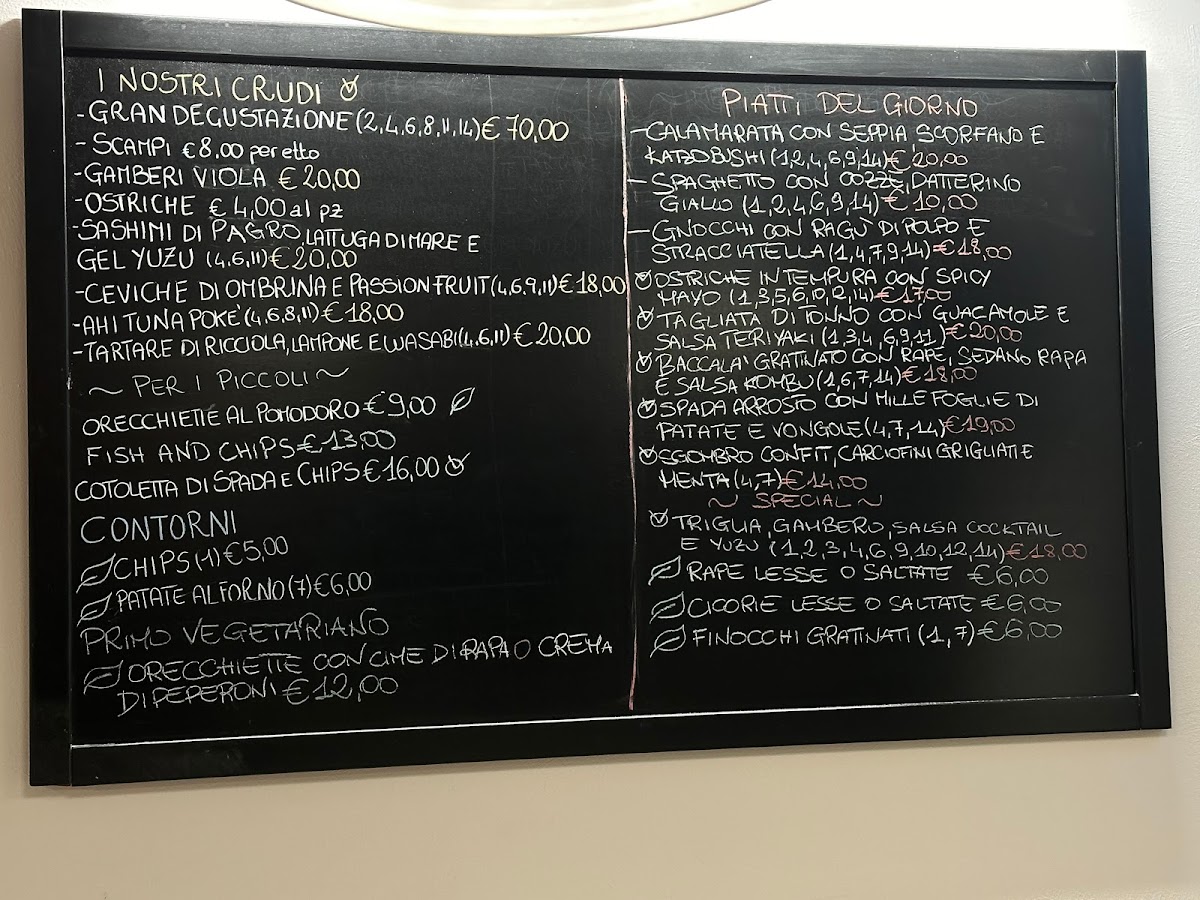 I NOSTRI CRUDI
-GRAN DEGUSTAZIONE (2,4,6,8,11,14) € 70,00
- SCAMPI € 8,00 per etto
-GAMBERI VIOLA € 20,00
-OSTRICHE € 4,00 al pz
-SASHIMI DI PAGRO, LATTUGA DI MARE E
GEL YUZU (4,6,11) € 20,00
-CEVICHE DI OMBRINA E PASSION FRUIT (4,6,9,11) € 18,00
-AHI TUNA POKE' (4,6,8,11) € 18,00
-TARTARE DI RICCIOLA, LAMPONE E WASABI (4,6,11) € 20,00
~ PER I PICCOLI ~
ORECCHIETTE AL POMODORO € 9,00
FISH AND CHIPS € 13,00
COTOLETTA DI SPADA E CHIPS € 16,00
CONTORNI
CHIPS (1) € 5,00
PATATE AL FORNO (7) € 6,00
PRIMO VEGETARIANO
ORECCHIETTE CON CIME DI RAPA O CREMA
DI PEPERONI € 12,00
PIATTI DEL GIORNO
-CALAMARATA CON SEPPIA, SCORFANO E
KATZOBUSHI (1,2,4,6,9,14) € 20,00
- SPAGHETTO CON COZZE, DATTERINO
GIALLO (1,2,4,6,9,14) € 10,00
- GNOCCHI CON RAGÙ DI POLPO E
STRACCIATELLA (1,4,7,9,14) € 18,00
OSTRICHE IN TEMPURA CON SPICY
MAYO (1,3,5,6,10,2,14) € 17,00
TAGLIATA DI TONNO CON GUACAMOLE E
SALSA TERIYAKI (1,3,4,6,9,11) € 20,00
BACCALA' GRATINATO CON RAPE, SEDANO RAPA
E SALSA KOMBU (1,6,7,14) € 18,00
SPADA ARROSTO CON MILLE FOGLIE DI
PATATE E VONGOLE (4,7,14) € 19,00
SGOMBRO CONFIT, CARCIOFINI GRIGLIATI E
MENTA (4,7) € 14,00
~ SPECIAL ~
TRIGLIA, GAMBERO, SALSA COCKTAIL
E YUZU (1,2,3,4,6,9,10,12,14) € 18,00
RAPE LESSE O SALTATE € 6,00
CICORIE LESSE O SALTATE € 6,00
FINOCCHI GRATINATI (1,7) € 6,00